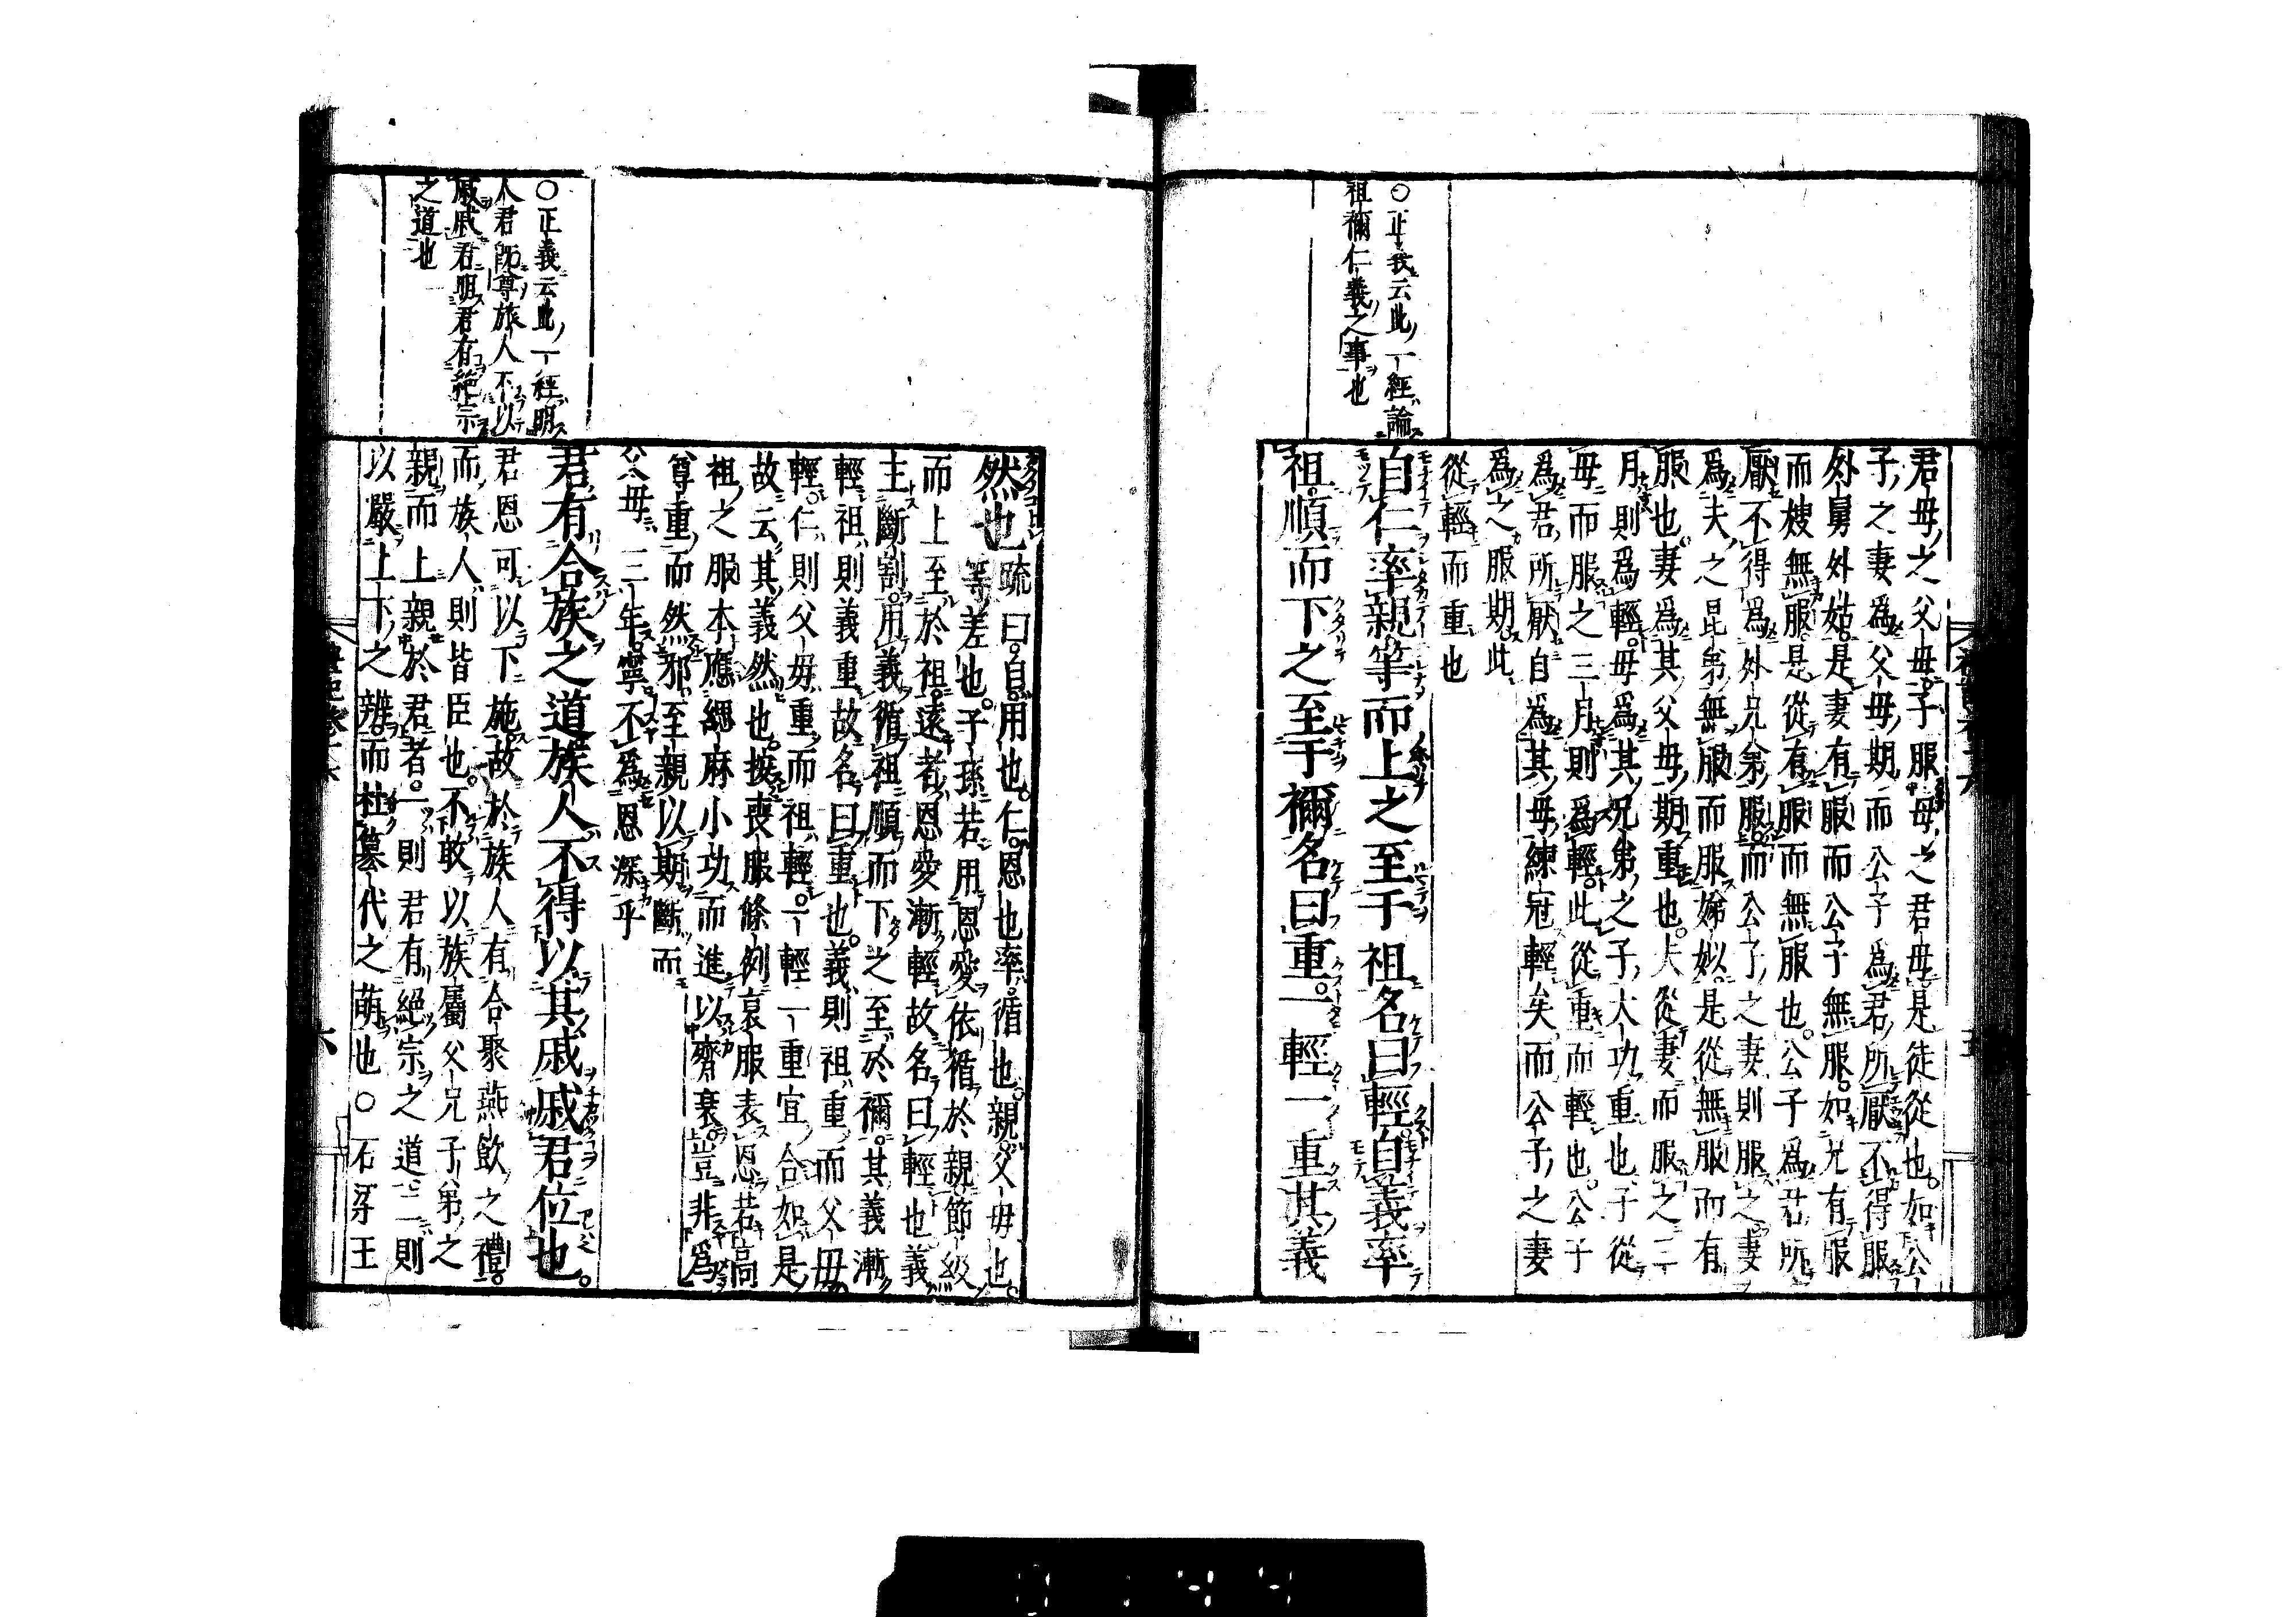 君母之父母子服母之君母是徒從也如公
子之妻爲父母期而公子爲君所厭不得服
外舅外姑是妻有服而公子無服如兄有服
而嫂無服是從有服而無服也公子爲君所
厭不得爲外兄弟服而公子之妻則服之妻
爲夫之昆弟無服而服娣姒是從無服而有
服也妻爲其父母期重也夫從妻而服之三
月則爲輕母爲其兄弟之子大功重也子從
母而服之三月則爲輕此從重而輕也公子
爲君所厭自爲其母練冠輕矣而公子之妻
爲之服期此
從輕而重也
○正義云此一經論
祖禰仁義之事也
自仁率親等而上之至于祖名曰輕自義率
祖順而下之至于禰名曰重一輕一重其義
然也
疏曰自用也仁恩也率循也親父母也
等差也子孫若用恩愛依循於親節級
而上至於祖遠者恩愛漸輕故名曰輕也義
主斷割用義循祖順而下之至於禰其義漸
輕祖則義重故名曰重也義則祖重而父母
輕仁則父母重而祖輕一輕一重宜合如是
故云其義然也按喪服條例衰服表恩若高
祖之服本應緦麻小功而進以齊衰豈非爲
尊重而然邪至親以期斷而
父母三年寧不爲恩深乎
○正義云此一經明
人君既尊族人不以
戚戚君明君有絶宗
之道也
君有合族之道族人不得以其戚戚君位也
君恩可以下施故於族人有合聚燕飲之禮
而族人則皆臣也不敢以族屬父兄子弟之
親而上親於君者一則君有絶宗之道二則
以嚴上下之辨而杜簒代之萌也○石梁王
六